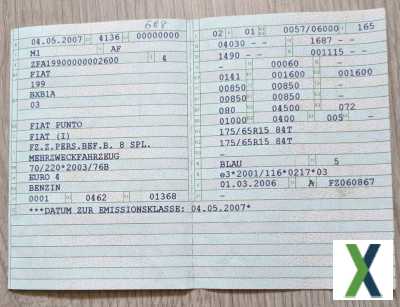 668
04.05.2007 4136 00000000
M1 AF
ZFA19900000002600 4
FIAT
199
BXB1A
03
FIAT PUNTO
FIAT (I)
FZ.Z.PERS.BEF.B. 8 SPL.
MEHRZWECKFAHRZEUG
70/220*2003/76B
EURO 4
BENZIN
0001 0462 01368
***DATUM ZUR EMISSIONSKLASSE: 04.05.2007*
02 01 0057/06000 165
04030 - - 1687 - -
1490 - - 001115 - -
- 00060 - -
0141 001600 001600
00850 00850 -
00850 00850 -
080 04500 072
01000 0400 005 -
175/65R15 84T
175/65R15 84T
-
-
BLAU 5
e3*2001/116*0217*03
01.03.2006 A FZ060867
X